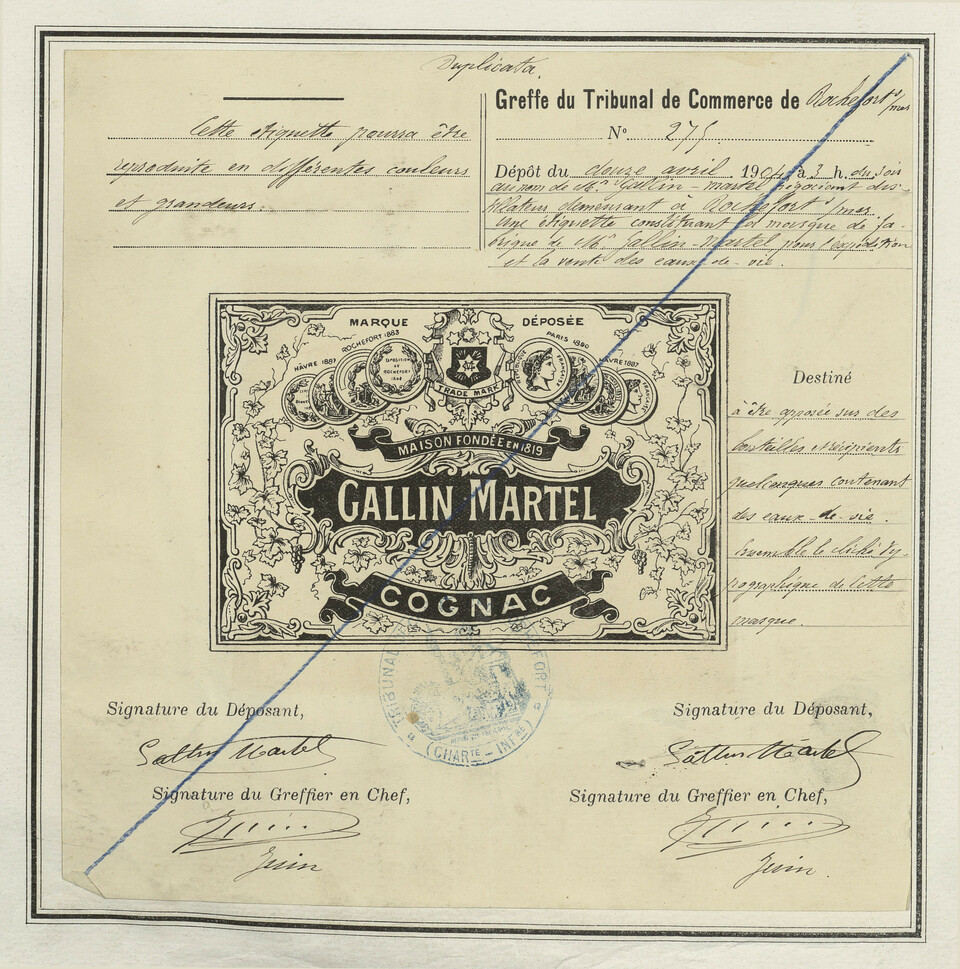 Duplicata.
Cette étiquette pourra être
reproduite en différentes couleurs
et grandeurs.
Greffe du Tribunal de Commerce de Rochefort s/ mer
N° 275
Dépôt du douze avril 1904 à 3 h. du soir
au nom de Mr. Gallin-Martel négociant dis-
tillateur demeurant à Rochefort s/ mer
une étiquette constituant la marque de fa-
brique de Mr. Gallin-Martel pour l'expédition
et la vente des eaux-de-vie.
MARQUE DÉPOSÉE
HÂVRE 1887
ROCHEFORT 1883
PARIS 1890
HÂVRE 1887
EXPOSITION DE ROCHEFORT
TRADE MARK
MAISON FONDÉE EN 1819
GALLIN MARTEL
COGNAC
Destiné
à être apposée sur des
bouteilles & récipients
quelconques contenant
des eaux-de-vie.
Ensemble le cliché ty-
pographique de cette
marque.
TRIBUNAL ROCHEFORT
(CHARTE - INFRE)
Signature du Déposant,
Gallin Martel
Signature du Greffier en Chef,
Signature du Déposant,
Gallin Martel
Signature du Greffier en Chef,